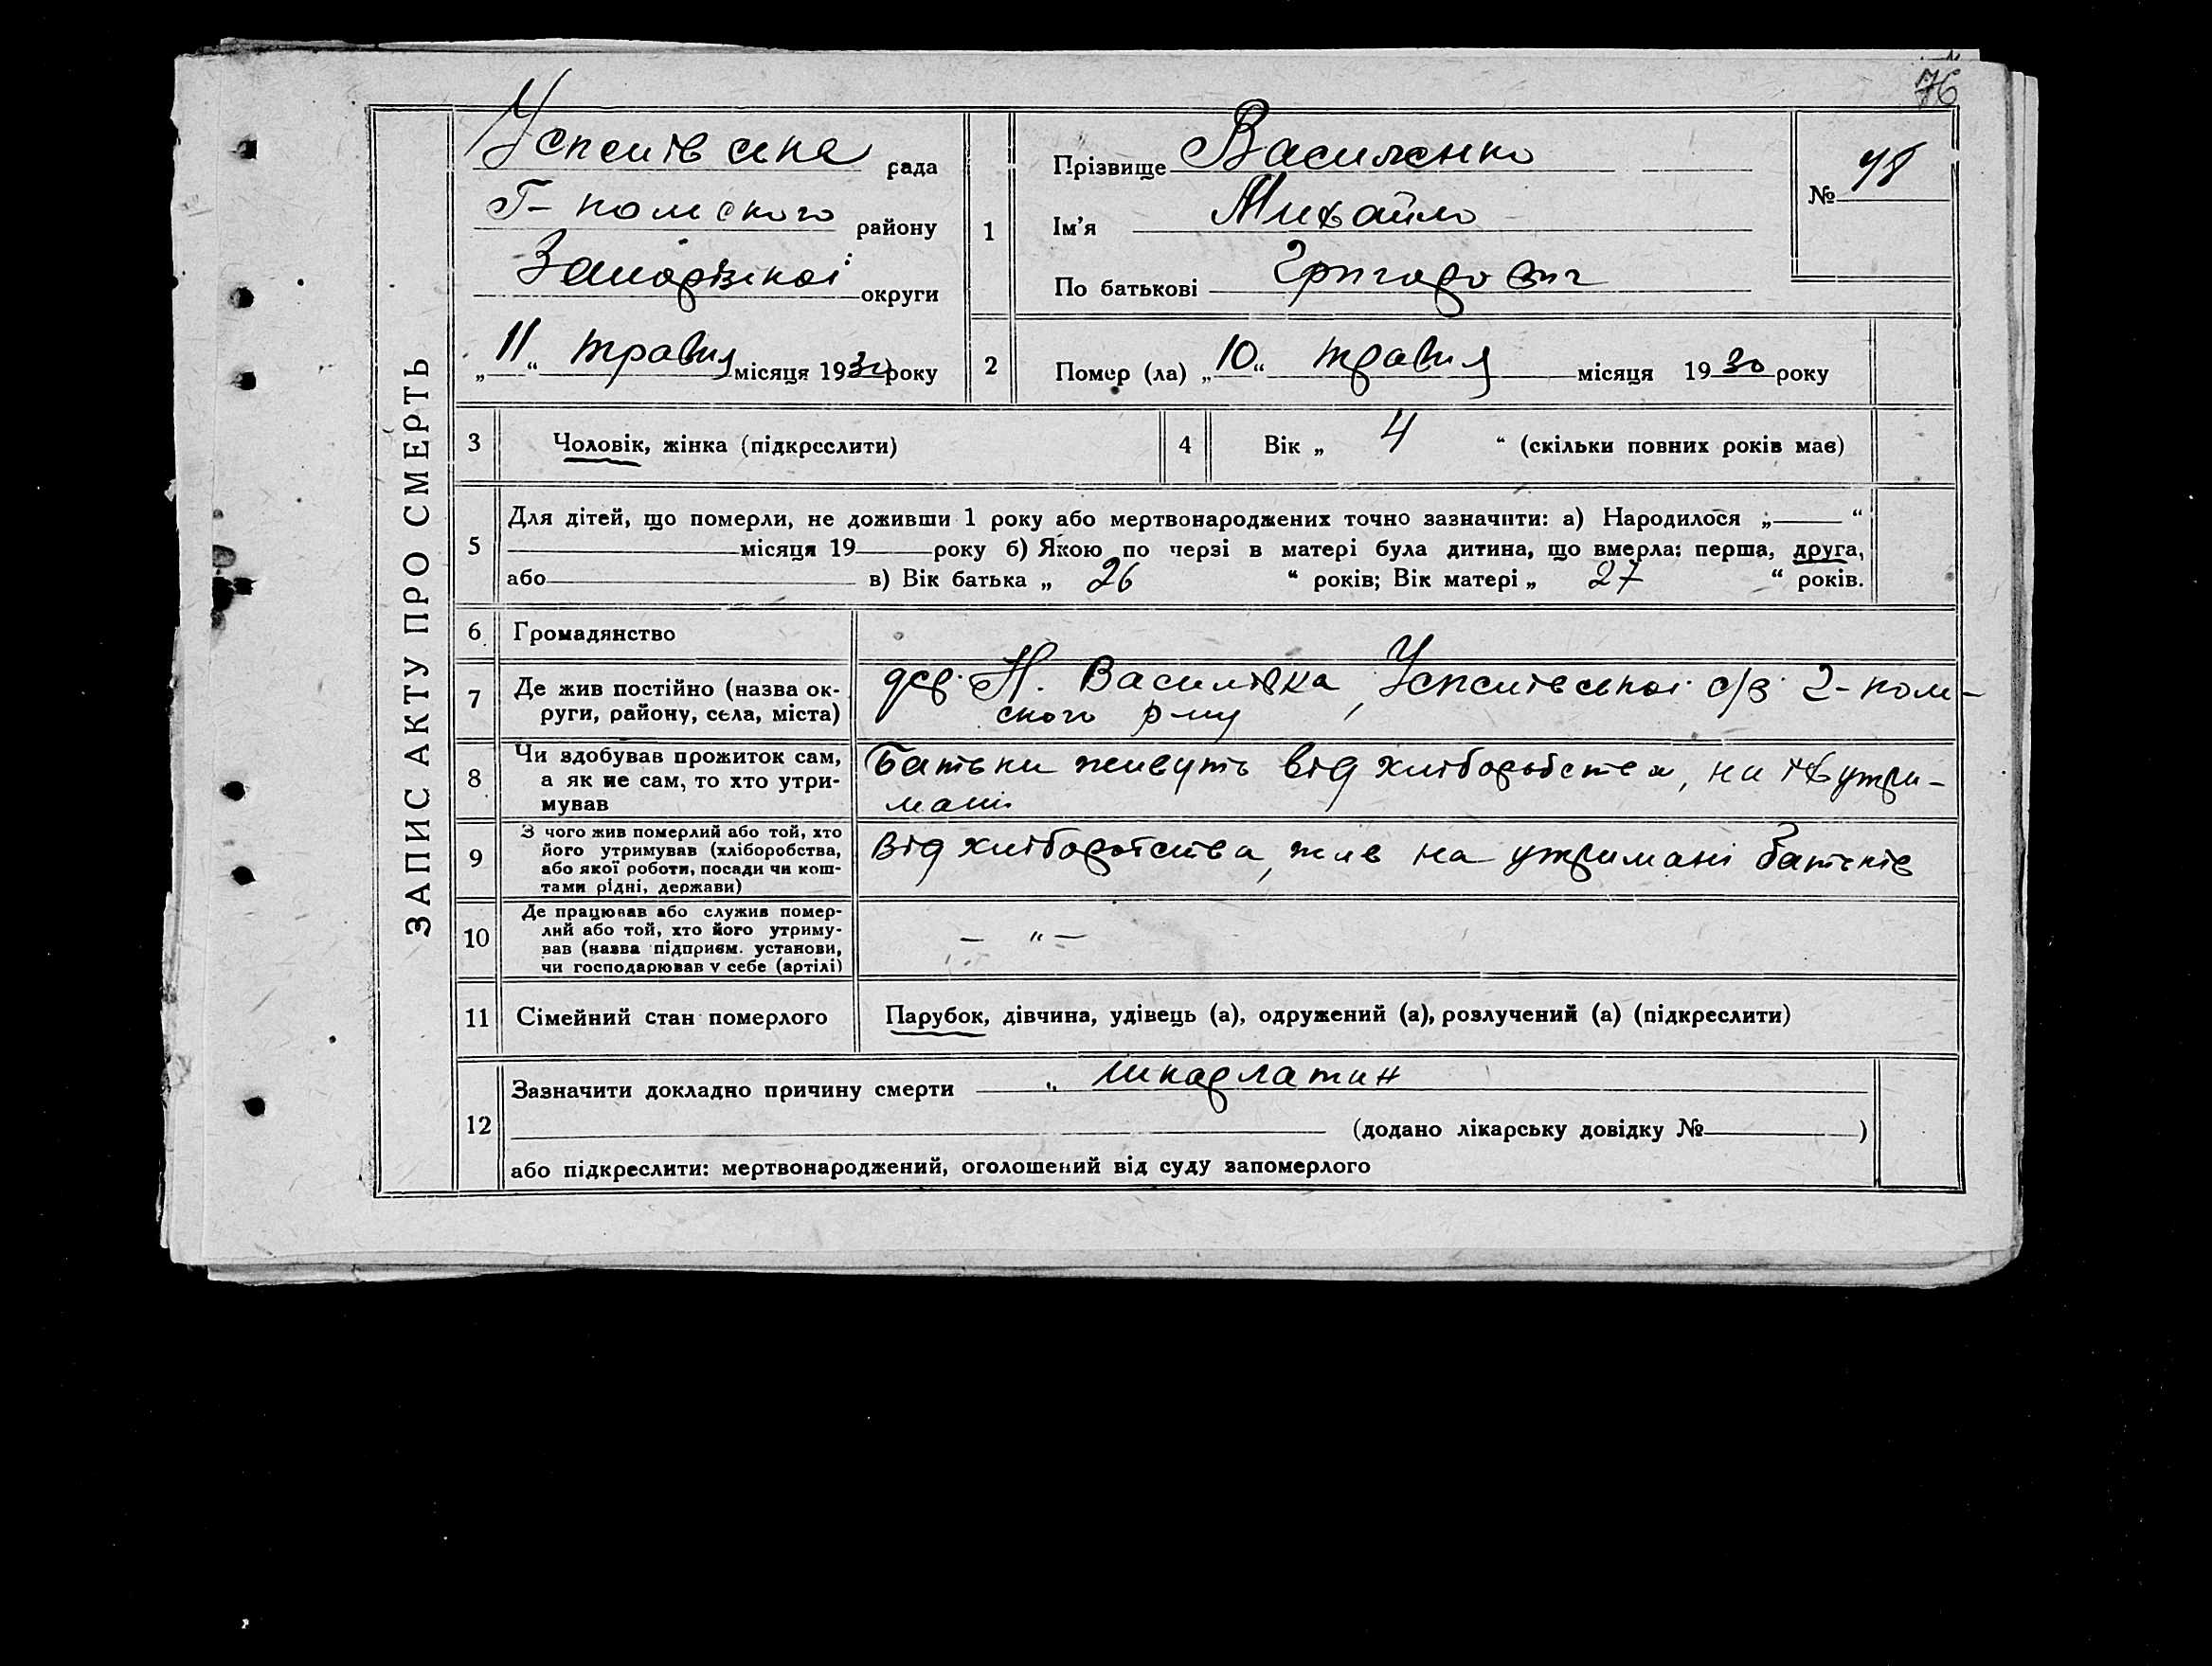 76
ЗАПИС АКТУ ПРО СМЕРТЬ
Успенівська рада
Г-польского району
Запорізької округи
„11“ травня місяця 1930 року
1
Прізвище Василенко
Ім'я Михайло
По батькові Григорович
№
2
Помер (ла) „10“ травня місяця 1930 року
3 Чоловік, жінка (підкреслити)
4 Вік „ 4 “ (скільки повних років має)
5 Для дітей, що померли, не доживши 1 року або мертвонароджених точно зазначити: а) Народилося „—“
місяця 19 року б) Якою по черзі в матері була дитина, що вмерла: перша, друга,
або в) Вік батька „ 26 “ років; Вік матері „ 27 “ років.
6 Громадянство
7 Де жив постійно (назва ок-
руги, району, села, міста)
дер. Н. Василівка, Успенівської с/р Г-поль-
ского р-ну
8 Чи здобував прожиток сам,
а як не сам, то хто утри-
мував
Батьки живуть від хліборобства, на їх утри-
мані
9 З чого жив померлий або той, хто
його утримував (хліборобства,
або якої роботи, посади чи кош-
тами рідні, держави)
Від хліборобства, жив на утримані батьків
10 Де працював або служив помер-
лий або той, хто його утриму-
вав (назва підприєм. установи,
чи господарював у себе (артілі)
— „ —
11 Сімейний стан померлого
Парубок, дівчина, удівець (а), одружений (а), розлучений (а) (підкреслити)
12 Зазначити докладно причину смерти „ шкарлатин
(додано лікарську довідку № )
або підкреслити: мертвонароджений, оголошений від суду запомерлого